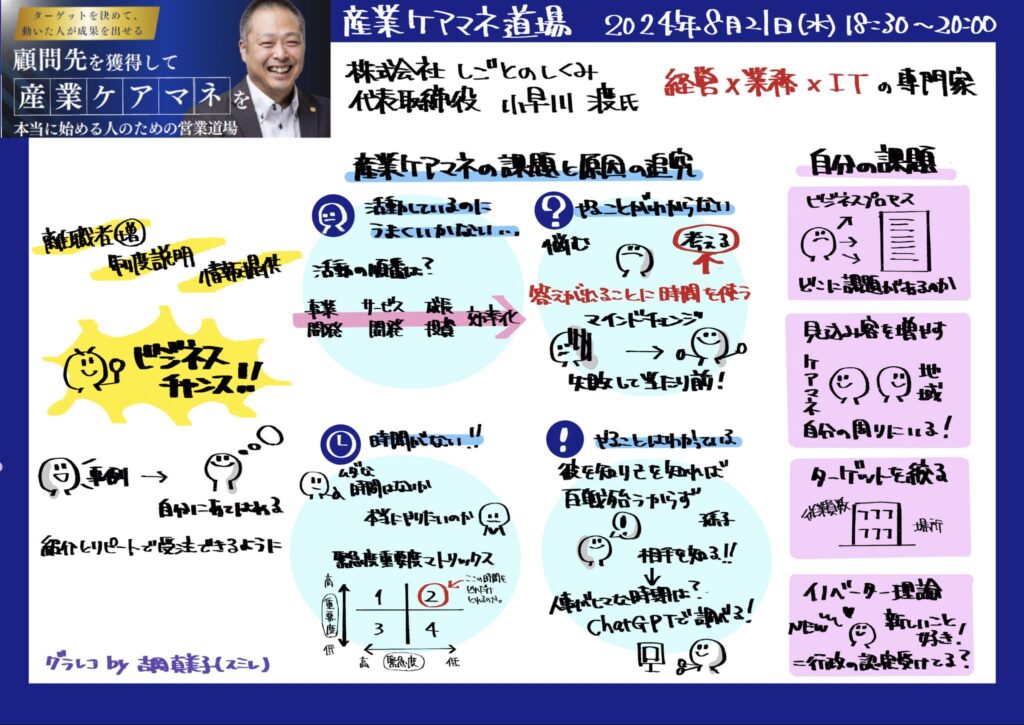 ターゲットを決めて、
動いた人が成果を出せる
顧問先を獲得して
産業ケアマネを
本当に始める人のための営業道場
産業ケアマネ道場 2024年8月21日(水) 18:30〜20:00
株式会社 しごとのしくみ
代表取締役 小早川 渡氏
経営×業務×ITの専門家
離職者増
制度説明
情報提供
ビジネス
チャンス!!
事例
自分にあてはめる
紹介とリピートで受注できるように
グラレコ by
(スミレ)
産業ケアマネの課題と原因の追究
活動しているのに
うまくいかない…
活動の順番は?
事業
開発
サービス
開発
成長
投資
効率化
やることがわからない
悩む
考える
答えが出ることに時間を使う
マインドチェンジ
失敗して当たり前!
時間がない!!
ムダな
時間はないか
本当にやりたいのか
緊急度重要度マトリックス
高
重要度
低
1
2
3
4
ここの時間を
どれだけ
とれるのか。
高
緊急度
低
やることはわかっている
彼を知り己を知れば
百戦殆うからず
孫子
相手を知る!!
人事が忙しな時期は?
ChatGPTで調べる!
自分の課題
ビジネスプロセス
どこに課題があるのか
見込み客を増やす
ケアマネ
地域
自分の周りにいる!
ターゲットを絞る
従業員数
場所
イノベーター理論
NEW
新しいこと
好き!
=行政の認定受けてる?